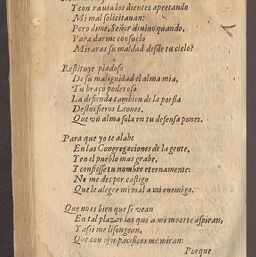 Y con rauia los dientes apretando
Mi mal solicitauan:
Pero dime, Señor diuino quando,
Para darme consuelo
Miraras su maldad desde tu cielo?
Restituye piadoso
De su malignidad el alma mia,
Tu braço poderoso
La defienda tambien de la porfia
Destos fieros Leones,
Que vn alma sola en tu defensa pones.
Para que yo te alabe
En las Congregaciones de la gente,
Y en el pueblo mas graue,
Y confiesse tu nombre eternamente:
No me des por castigo
Que le alegre mi mal a mi enemigo.
Que no es bien que se vean
En tal plazer los que a mi muerte aspiran,
Y assi me lisongean,
Que con ojos pacificos me miran:
Porque